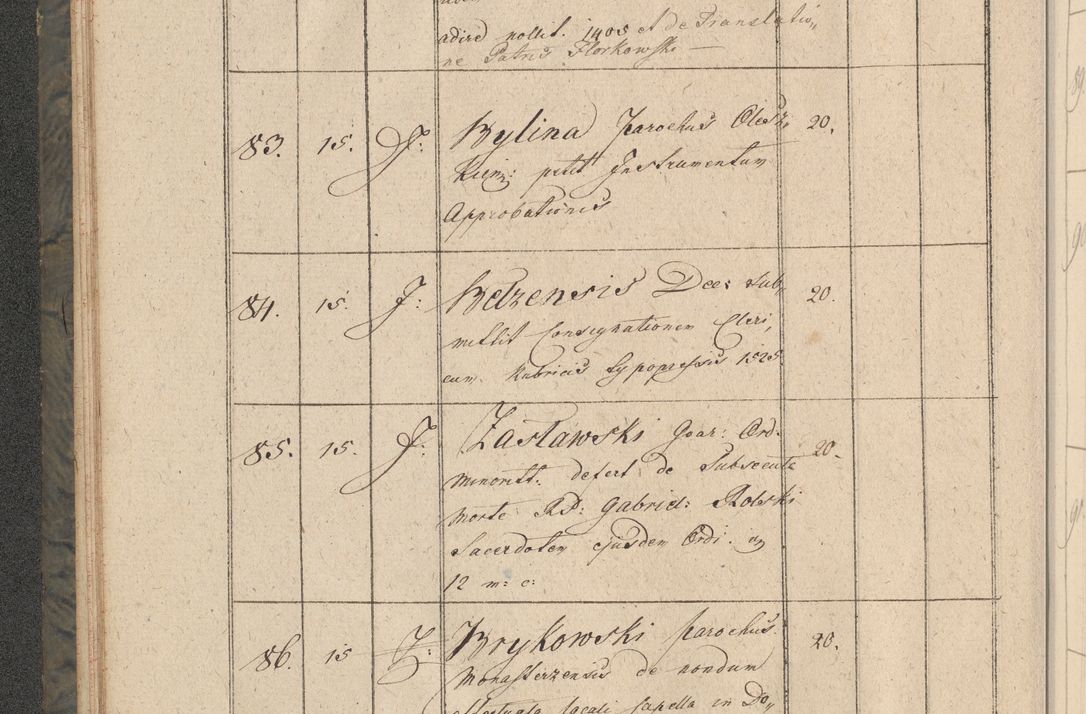 adire pollit. 1405 et de Translatio,,
ne Patris Florkowski —
83. 15. J: Bylina Parochus Olesz, 20.
Kiem: petit Instrumentum
Approbationis
84. 15. J: Belzensis Dec: sub, 20.
mittit Consignationem Cleri,
cum Rubricis 1525.
85. 15. J: Zasławski Guar: Ord. 20.
Minoritt. defert de subsecuta
morte RP: Gabriel: Rolski
Sacerdotem ejusdem Ordi.
12 m: c:
86. 15 J: Brykowski Parochus 20.
Monasterzensis de nondum
locali Capella in Do,,